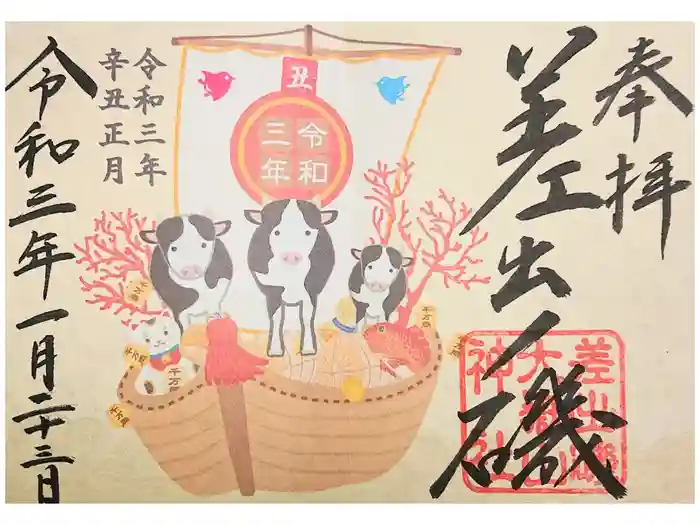 奉拝
差出ノ磯
差出磯
大嶽山
神社
丑
令和
三年
令和三年
辛丑正月
令和三年一月二十三日
千万両
千万両
千万両
千万両
千万両